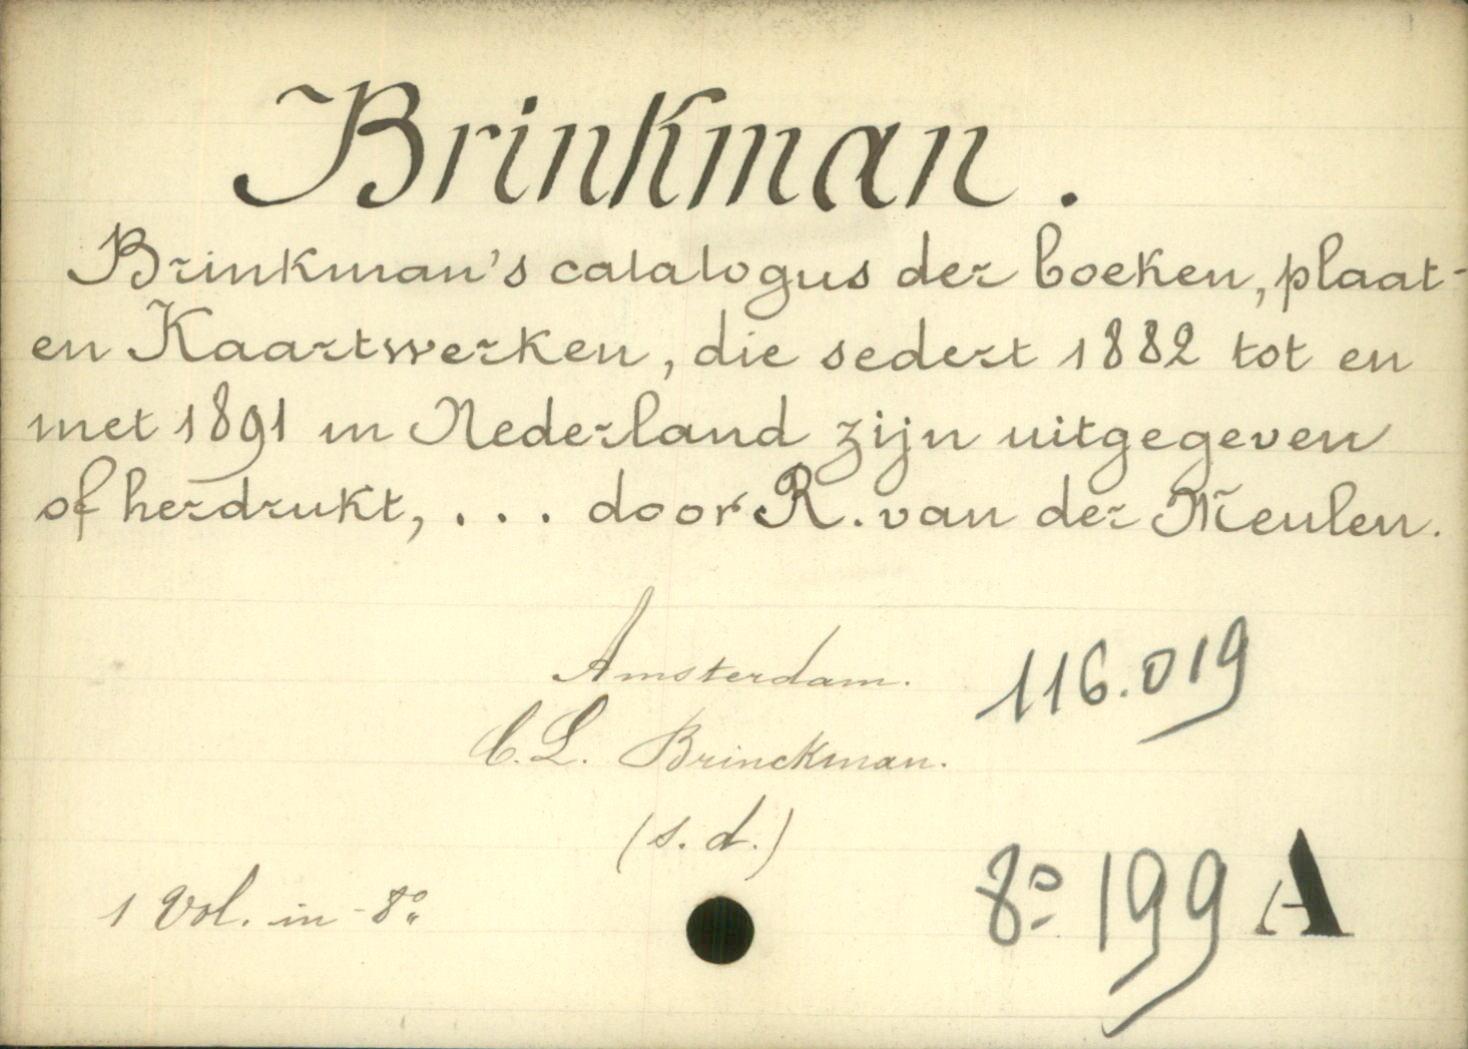 Brinkman.
Brinkman's catalogus der boeken, plaat-
en Kaartwerken, die sedert 1882 tot en
met 1891 in Nederland zijn uitgegeven
of herdrukt, ... door R. van der Meulen.
Amsterdam.
116.019
C. L. Brinckman.
(s. d.)
1 Vol. in-8º
8º 199 A